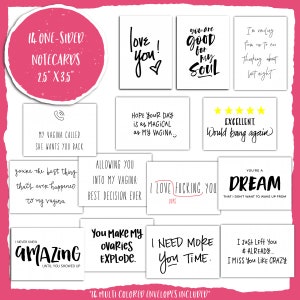 16 ONE-SIDED
NOTECARDS
2.5" X 3.5"
love
you!
you are
GOOD
FOR MY
SOUL
turn me to on
thinking about
last night
MY VAGINA CALLED
SHE WANTS YOU BACK
HOPE YOUR DAY
IS AS MAGICAL
AS MY VAGINA
EXCELLENT
Would bang again
you're the best thing
that's ever happened
to my vagina
ALLOWING YOU
INTO MY VAGINA
BEST DECISION EVER
I LOVE FUCKING YOU
YOU'RE A
DREAM
THAT I DON'T WANT TO WAKE UP FROM
I NEVER KNEW
AMAZING
UNTIL YOU SHOWED UP
YOU MAKE MY
OVARIES
EXPLODE.
I NEED MORE
YOU TIME.
I Just Left You
& Already...
I Miss You Like CRAZY
*16 MULTI-COLORED ENVELOPES INCLUDED*